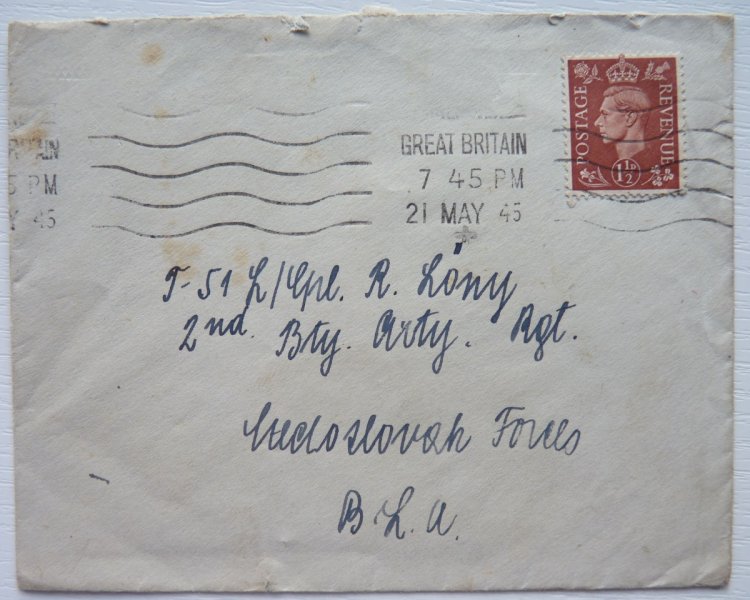 GREAT BRITAIN
7 45 PM
21 MAY 45
POSTAGE
REVENUE
1½D
AIN
5 PM
Y 45
T-51 L/Cpl. R. Lóny
2nd. Bty. Arty. Rgt.
Czechoslovak Forces
B.L.A.